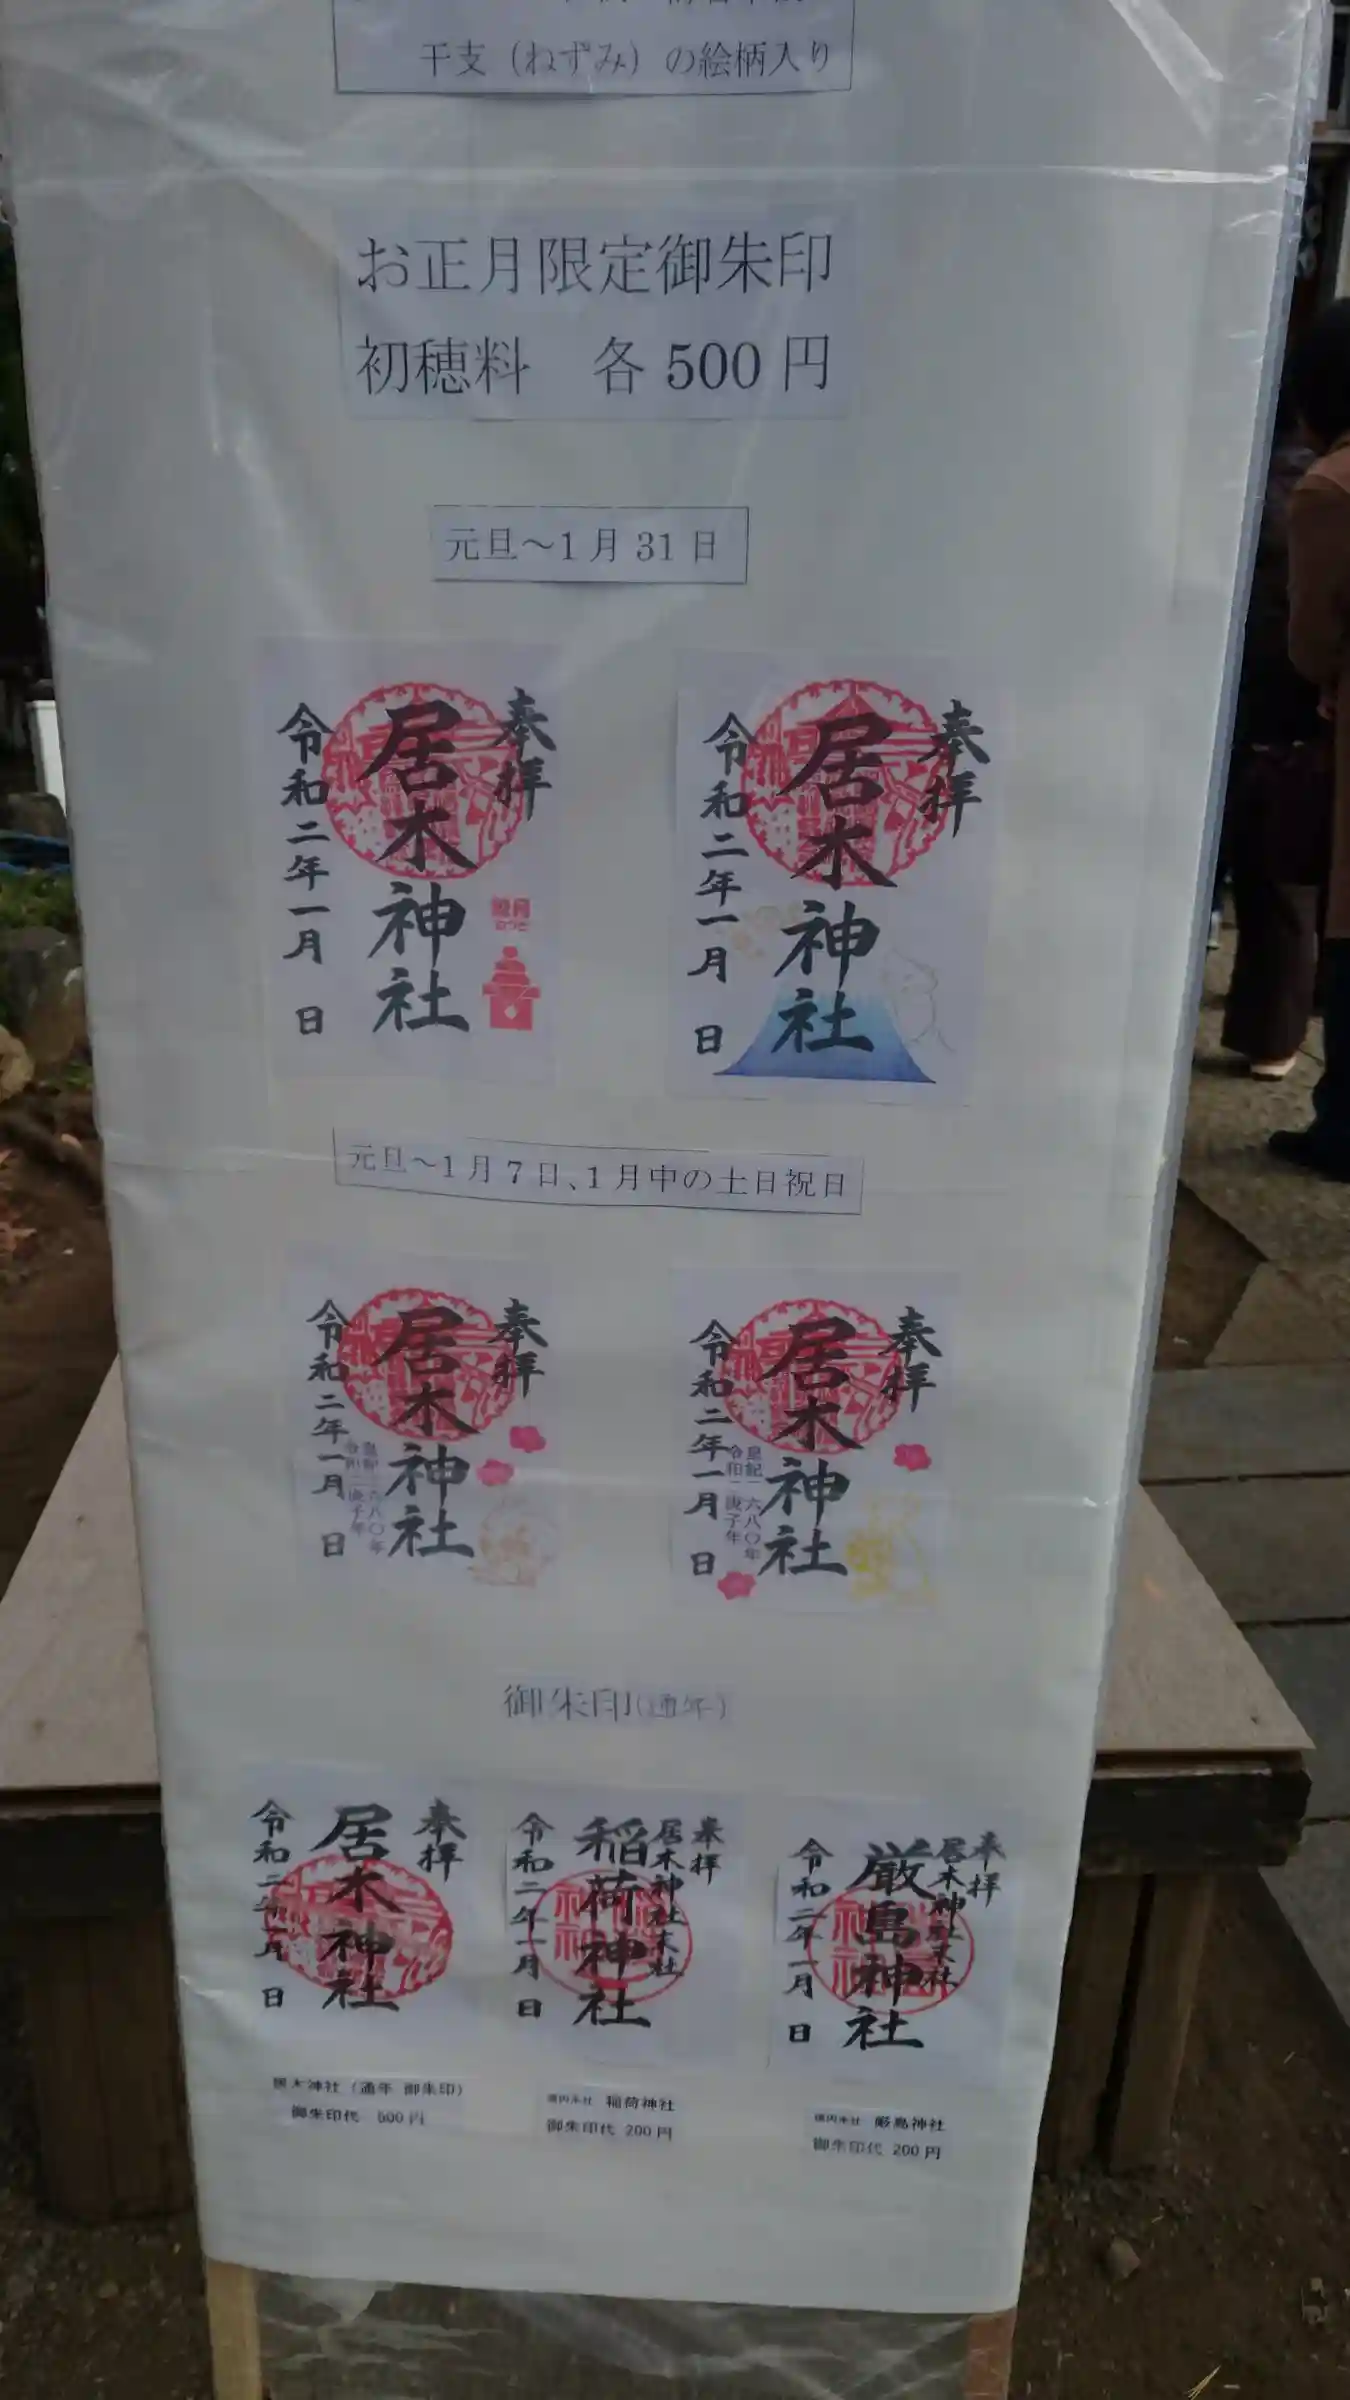 干支（ねずみ）の絵柄入り
お正月限定御朱印
初穂料　各500円
元旦～1月31日
奉拝
居木神社
令和二年一月　日
奉拝
居木神社
令和二年一月　日
元旦～1月7日、1月中の土日祝日
奉拝
居木神社
令和二年一月　日
奉拝
居木神社
令和二年一月　日
御朱印(通年)
奉拝
居木神社
令和二年一月　日
奉拝
居木神社末社
稲荷神社
令和二年一月　日
奉拝
居木神社末社
厳島神社
令和二年一月　日
居木神社（通年 御朱印）
御朱印代　500円
境内末社　稲荷神社
御朱印代 200円
境内末社　厳島神社
御朱印代 200円